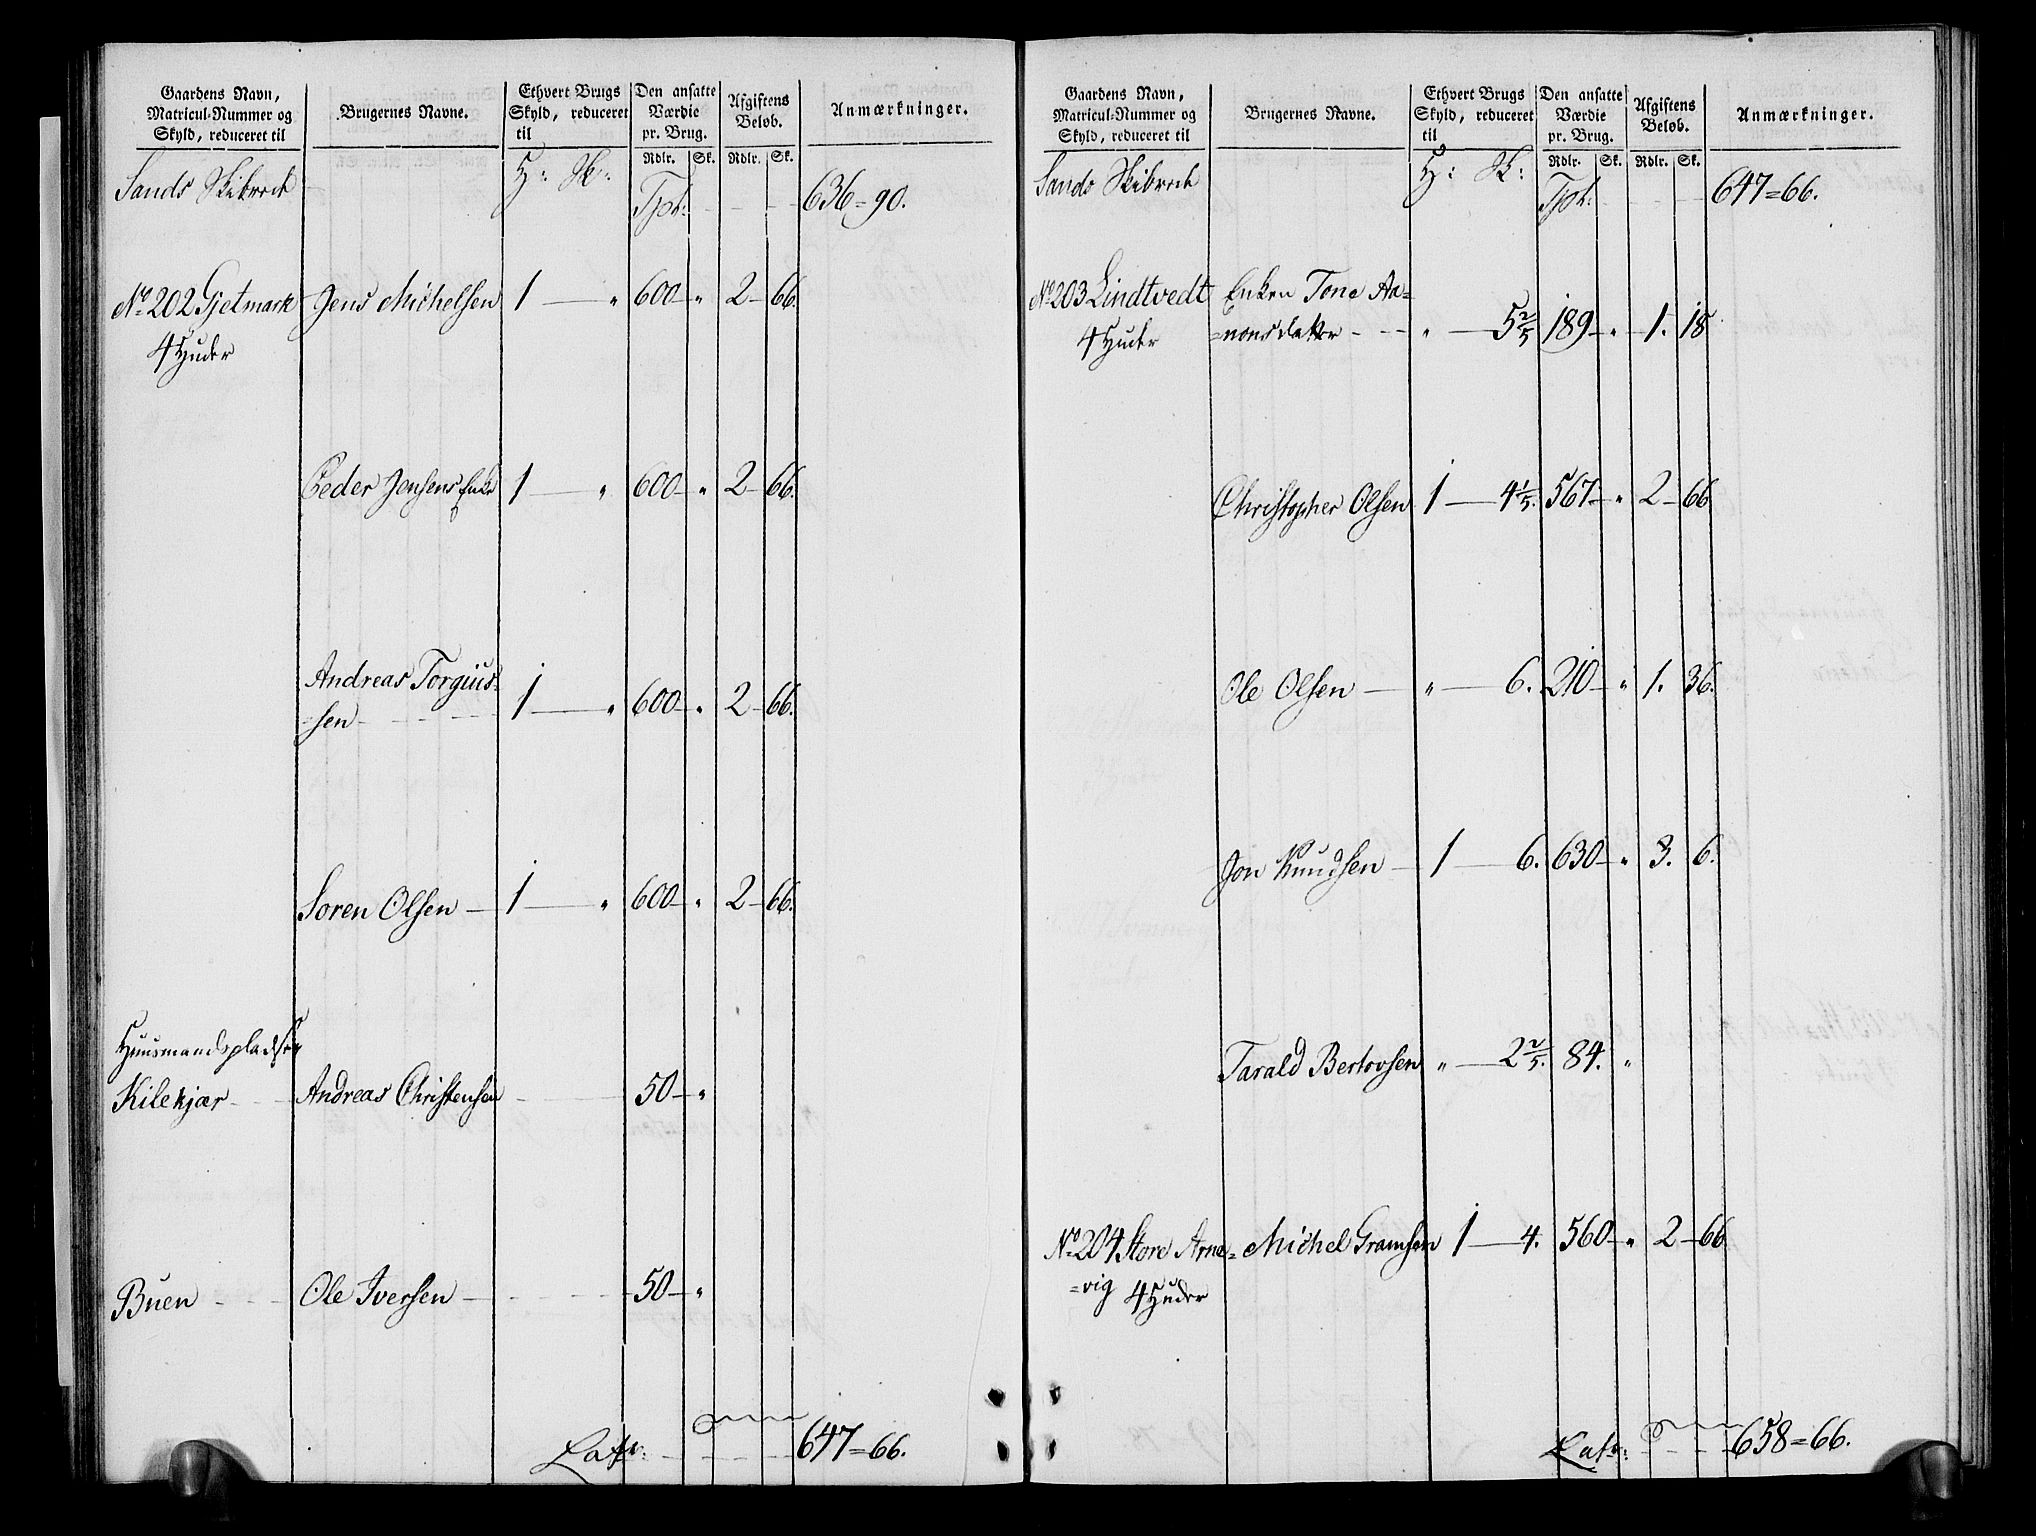 Gaardens Navn, Matricul-Nummer og Skyld, reduceret til
Brugernes Navne.
Ethvert Brugs Skyld, reduceret til
Den ansatte Værdie pr. Brug.
Afgiftens Beløb.
Anmærkninger.
Rdlr. Sk. Rdlr. Sk.
Sands Skibrede H: Sk: Tpt: 636=90.
No 202 Gjetmark Jens Michelsen 1 — " 600 — " 2 — 66.
4 Huder
Peder Jensens Enke 1 — " 600 — " 2 — 66.
Andreas Torgius-
-sen 1 — " 600 — " 2 — 66.
Soren Olsen — 1 — " 600 — " 2 — 66.
Huusmandspladser
Kilekjær Andreas Christensen 50 — "
Buen Ole Iversen 50 — "
Latr: 647=66.
Gaardens Navn, Matricul-Nummer og Skyld, reduceret til
Brugernes Navne.
Ethvert Brugs Skyld, reduceret til
Den ansatte Værdie pr. Brug.
Afgiftens Beløb.
Anmærkninger.
Rdlr. Sk. Rdlr. Sk.
Sands Skibrede H: Sk: Tpt: 647=66.
No 203 Lindtvedt Enken Tone Aa=
4 Huder =nonsdatter " — 5 2/5 189 — " 1. 18
Christopher Olsen 1 — 4 1/5. 567 — " 2 — 66
Ole Olsen — " — 6. 210 — " 1. 36.
Jon Knudsen — 1 — 6. 630 — " 3. 6.
Tarald Bertovsen " — 2 2/5. 84. "
No 204 Store Arne= Michel Gramsen 1 — 4. 560 — " 2 — 66
=vig 4 Huder
Latr: 658=66.